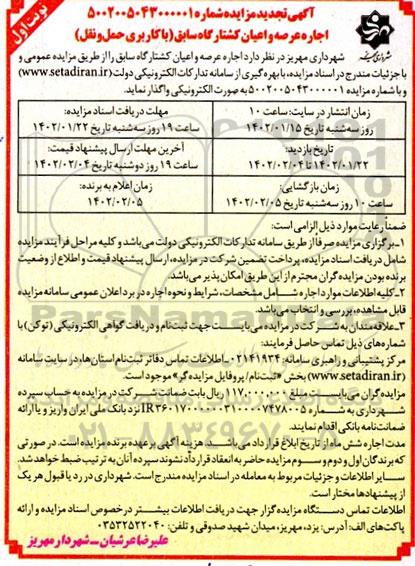 نوبت اول
آگهی تجدید مزایده شماره ۵۰۰۲۰۰۵۰۴۳۰۰۰۰۰۱
اجاره عرصه و اعیان کشتارگاه سابق (با کاربری حمل ونقل)
شهرداری مهریز در نظر دارد اجاره عرصه و اعیان کشتارگاه سابق را از طریق مزایده عمومی و
با جزئیات مندرج در اسناد مزایده، با بهره گیری از سامانه تدارکات الکترونیکی دولت (www.setadiran.ir)
و با شماره مزایده ۵۰۰۲۰۰۵۰۴۳۰۰۰۰۰۱ به صورت الکترونیکی واگذار نماید.
زمان انتشار در سایت: ساعت ۱۰
روز سه شنبه تاریخ ۱۴۰۲/۰۱/۱۵
مهلت دریافت اسناد مزایده:
ساعت ۱۹ روز سه شنبه تاریخ ۱۴۰۲/۰۱/۲۲
تاریخ بازدید:
۱۴۰۲/۰۱/۲۲ تا ۱۴۰۲/۰۲/۰۴
آخرین مهلت ارسال پیشنهاد قیمت:
ساعت ۱۹ روز دوشنبه تاریخ ۱۴۰۲/۰۲/۰۴
زمان بازگشایی:
ساعت ۱۰ روز سه شنبه تاریخ ۱۴۰۲/۰۲/۰۵
زمان اعلام به برنده:
۱۴۰۲/۰۲/۰۵
ضمنا رعایت موارد ذیل الزامی است:
۱ـ برگزاری مزایده صرفا از طریق سامانه تدارکات الکترونیکی دولت می باشد و کلیه مراحل فرآیند مزایده
شامل دریافت اسناد مزایده، پرداخت تضمین شرکت در مزایده، ارسال پیشنهاد قیمت و اطلاع از وضعیت
برنده بودن مزایده گران محترم از این طریق امکان پذیر می باشد.
۲ـ کلیه اطلاعات موارد اجاره شامل مشخصات، شرایط و نحوه اجاره در برد اعلان عمومی سامانه مزایده
قابل مشاهده، بررسی و انتخاب می باشد.
۳ـ علاقه مندان به شرکت در مزایده می بایست جهت ثبت نام و دریافت گواهی الکترونیکی (توکن) با
شماره های ذیل تماس حاصل فرمایند:
مرکز پشتیبانی و راهبری سامانه: ۰۲۱۴۱۹۳۴ ـ اطلاعات تماس دفاتر ثبت نام استان ها، در سایت سامانه
(www.setadiran.ir) بخش «ثبت نام / پروفایل مزایده گر» موجود است.
مزایده گران می بایست مبلغ ۱۱۷۰۰۰۰۰۰ ریال بابت ضمانت شرکت در مزایده به حساب سپرده
شهرداری به شماره نزد بانک ملی ایران واریز و یا ارائه
ضمانت نامه بانکی اقدام نمایند.
مدت اجاره شش ماه از تاریخ ابلاغ قرارداد می باشد. هزینه آگهی بر عهده برنده مزایده است. در صورتی
که برندگان اول و دوم و سوم مزایده حاضر به انعقاد قرارداد نشوند سپرده آنان به ترتیب ضبط خواهد شد.
سایر اطلاعات و جزئیات مربوط به معامله در اسناد مزایده مندرج است. شهرداری در رد یا قبول هر یک
از پیشنهادها مختار است.
اطلاعات تماس دستگاه مزایده گزار جهت دریافت اطلاعات بیشتر در خصوص اسناد مزایده و ارائه
پاکت های الف: آدرس: یزد، مهریز، میدان شهید صدوقی و تلفن: ۰۳۵۳۲۵۲۲۰۴۰
علیرضا عرشیان ـ شهردار مهریز